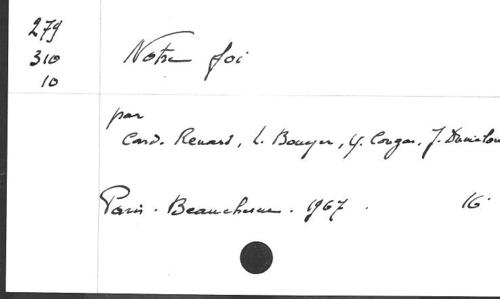 279
310
10
Notre foi
par
Card. Renard, L. Bouyer, Y. Congar, J. Daniélou
Paris. Beauchesne. 1967. 16°